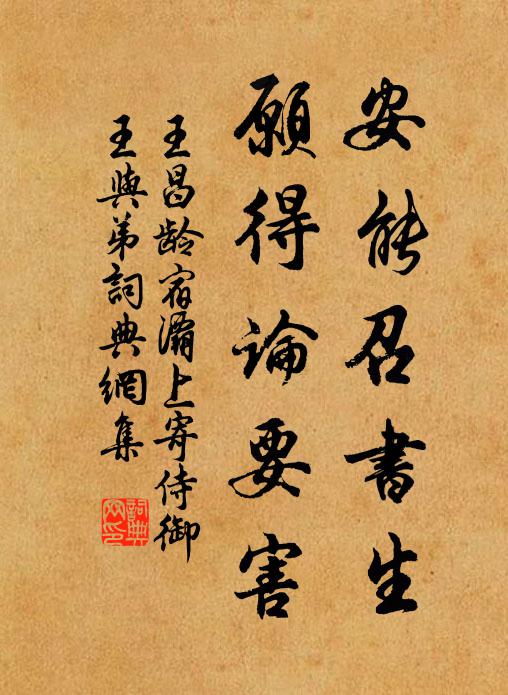 安能召書生
願得論要害
王昌龄宿灞上寄侍御
王與弟詞典網集
詞典
网印